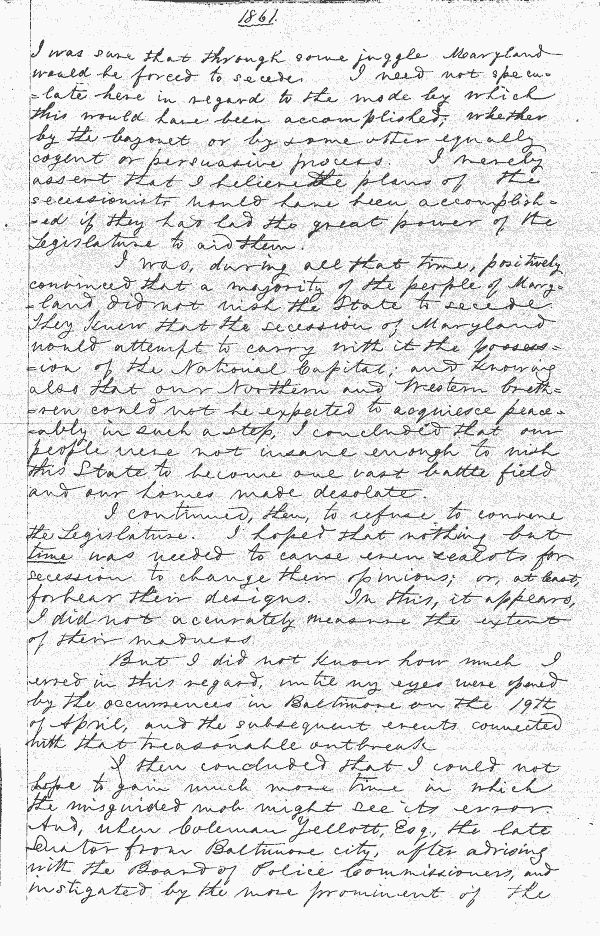 1861.
I was sure that through some juggle Maryland
would be forced to secede. I need not specu-
-late here in regard to the mode by which
this would have been accomplished; whether
by the bayonet or by some other equally
cogent or persuasive process. I merely
assert that I believe the plans of the
secessionists would have been accomplish-
-ed if they had had the great power of the
Legislature to aid them.
I was, during all that time, positively
convinced that a majority of the people of Mary-
-land did not wish the State to secede.
They knew that the secession of Maryland
would attempt to carry with it the possess-
-ion of the National Capital; and knowing
also that our Northern and Western breth-
-ren could not be expected to acquiesce peace-
-ably in such a step, I concluded that our
people were not insane enough to wish
this State to become one vast battle field
and our homes made desolate.
I continued, then, to refuse to convene
the Legislature. I hoped that nothing but
time was needed to cause even zealots for
secession to change their opinions; or, at least,
forbear their designs. In this, it appears,
I did not accurately measure the extent
of their madness.
But I did not know how much I
erred in this regard, until my eyes were opened
by the occurrences in Baltimore on the 19th
of April, and the subsequent events connected
with that treasonable outbreak
I then concluded that I could not
hope to gain much more time in which
the misguided mob might see its error.
And, when Coleman Yellott, Esq, the late
Senator from Baltimore city, after advising
with the Board of Police Commissioners, and
instigated by the more prominent of the